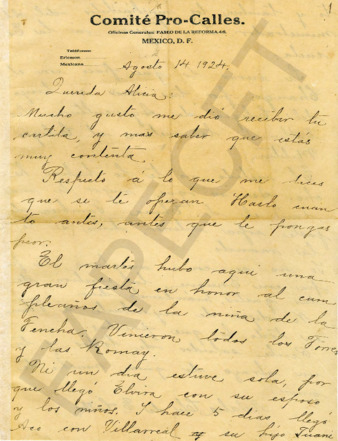 1
Comité Pro-Calles.
Oficinas Generales: PASEO DE LA REFORMA
MEXICO, D. F.
Teléfonos:
Ericsson
Mexicana
Agosto 14 1924.
Querida Alicia:
Mucho gusto me dió recibir tu
cartita, y mas saber que estás
muy contenta.
Respecto á lo que me dices
que se te operan Hazlo cuan
to antes, antes que te pongas
peor.
El martes hubo aqui una
gran fiesta en honor al cum
pleaños de la niña de la
Fencha. Vinieron todos los Torres
y las Romay.
Ni un dia estuve sola, por
que llegó Elvira con su esposo
y los niños. I hace 5 dias llegó
con Villarreal y su hijo Juane
FAPECFT